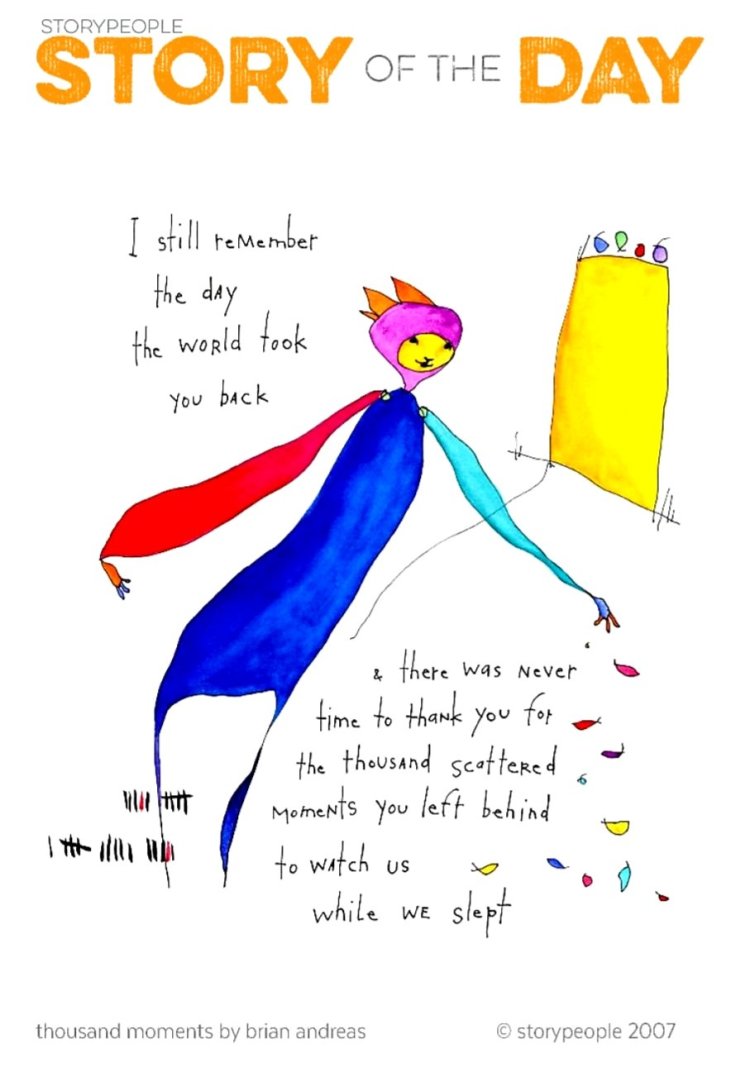 STORYPEOPLE
STORY OF THE DAY
I still remember
the day
the world took
you back
& there was never
time to thank you for
the thousand scattered
moments you left behind
to watch us
while we slept
thousand moments by brian andreas
© storypeople 2007